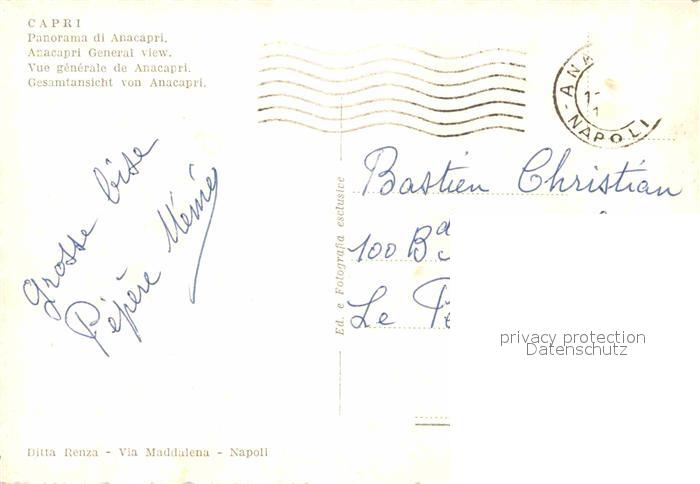 CAPRI
Panorama di Anacapri.
Anacapri General view.
Vue générale de Anacapri.
Gesamtansicht von Anacapri.
ANA
NAPOLI
Grosse bise
Pépère Mémé
Ed. e Fotografia esclusive
Bastien Christian
100 Bd
Le
privacy protection
Datenschutz
Ditta Renza - Via Maddalena - Napoli